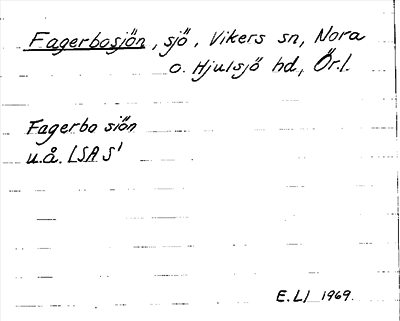 Fagerbosjön, sjö, Vikers sn, Nora
o. Hjulsjö hd, Örl.
Fagerbo sjön
u.å. LSA S1
E.LI 1969.